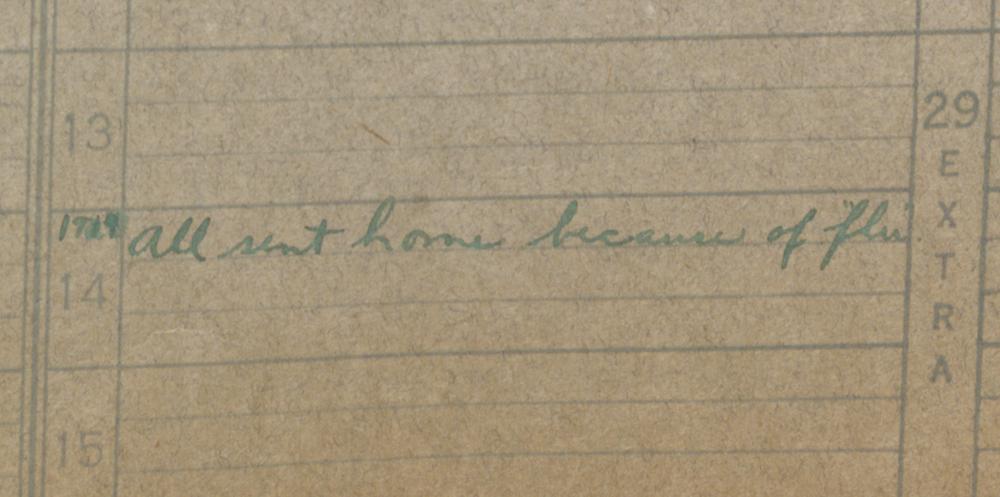 13
All sent home because of "flu"
14
15
29
E
X
T
R
A